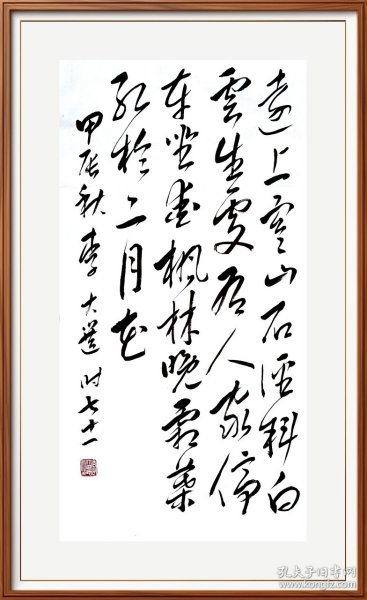 遠上寒山石径斜白
雲生處有人家停
车坐爱枫林晚霜葉
红於二月花
甲辰秋李大时七十一
孔夫子旧书网
www.kongfz.com